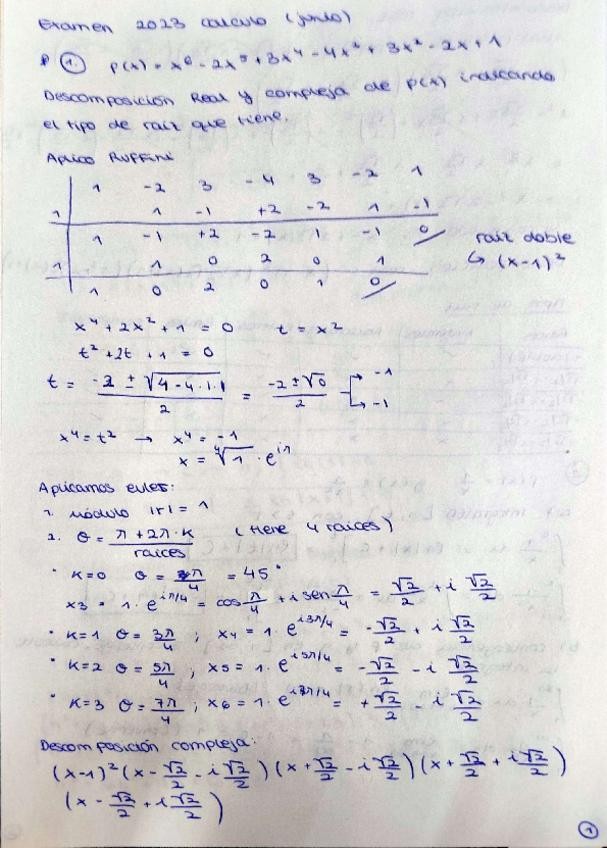 Examen 2023 calculo (junio)
P ①. P(x) = x⁶ - 2x⁵ + 3x⁴ - 4x³ + 3x² - 2x + 1
Descomposición Real y compleja de P(x) indicando
el tipo de raiz que tiene.
Aplico Ruffini
1 -2 3 -4 3 -2 1
1 1 -1 +2 -2 1 -1
1 -1 +2 -2 1 -1 0 raiz doble
1 1 0 2 0 1 ↳ (x-1)²
1 0 2 0 1 0
x⁴ + 2x² + 1 = 0 t = x²
t² + 2t + 1 = 0
t = (-2 ± √(4 - 4·1·1))/2 = (-2 ± √0)/2 → -1
→ -1
x⁴ = t² → x⁴ = -1
x = ⁴√1 · e^(iπ)
Aplicamos euler:
1. módulo |r| = 1
2. θ = (π + 2π·k)/raices (tiene 4 raices)
· k=0 θ = π/4 = 45°
x3 = 1·e^(iπ/4) = cos π/4 + i sen π/4 = √2/2 + i √2/2
· k=1 θ = 3π/4 ; x4 = 1·e^(i3π/4) = -√2/2 + i √2/2
· k=2 θ = 5π/4 ; x5 = 1·e^(i5π/4) = -√2/2 - i √2/2
· k=3 θ = 7π/4 ; x6 = 1·e^(i7π/4) = +√2/2 - i √2/2
Descomposición compleja:
(x-1)² (x - √2/2 - i √2/2) (x + √2/2 - i √2/2) (x + √2/2 + i √2/2)
(x - √2/2 + i √2/2)
①